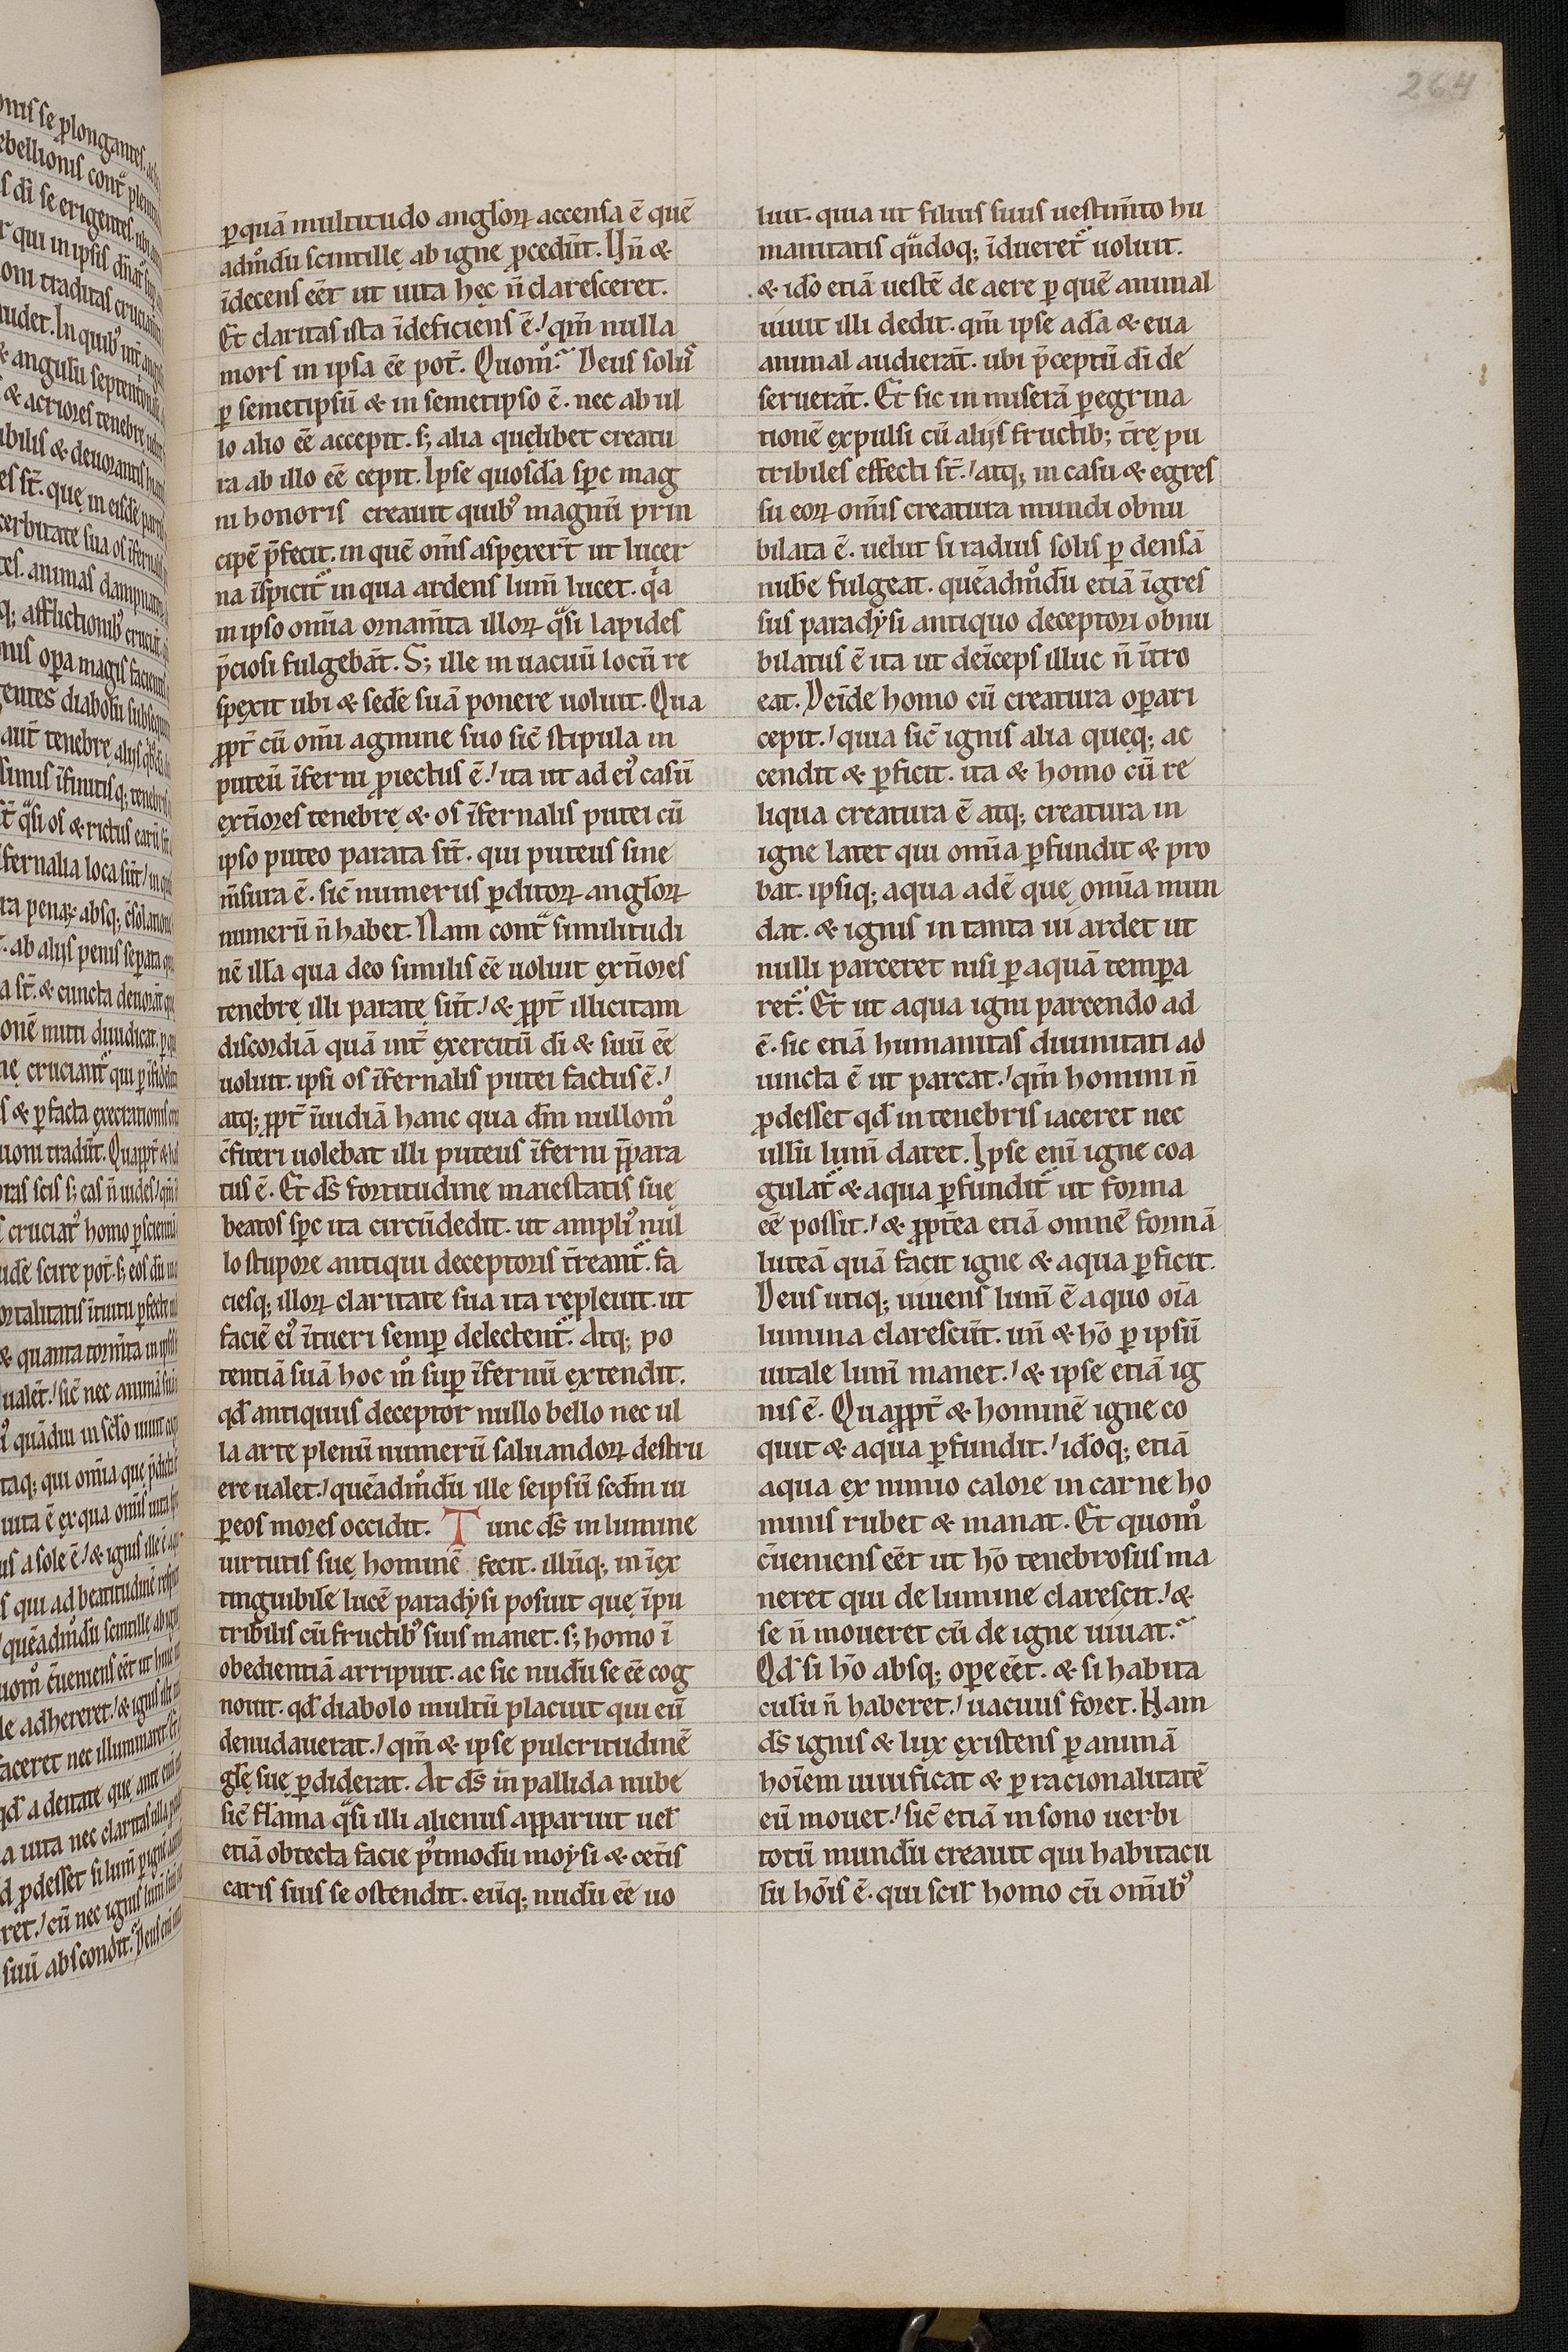 264
ꝑ quā multitudo angłoꝝ accensa ē quē
admͦdū scintillę ab igne ꝓcedūt. Vñ &
īdecens eēt ut uita hęc n̄ claresceret.
Et claritas ista īdeficiens ē. qm̄ nulla
mors in ipsa eē pot̄. Quomͦ? Deus solus
ꝑ semetipsū & in semetipso ē. nec ab ul
lo alio eē accepit. s; alia quęlibet creatu
ra ab illo eē cepit. Ipse quosdā sp̄c mag
ni honoris creauit quibꝰ magnū prin
cipē p̄fecit. in quē om̄s aspexer̄t ut lucer
na īspicit᷒ in qua ardens lum̄ lucet. qͣa
in ipso om̄ia ornam̄ta illoꝝ qͣsi lapides
p̄ciosi fulgebāt. S; ille in uacuū locū re
spexit ubi & sedē suā ponere uoluit. Qua
ꝓpt̄ cū om̄i agmine suo sic̄ stipula in
puteū īferni ꝓiectus ē. ita ut ad eiꝰ casū
ext̄iores tenebrę & os īfernalis putei cū
ipso puteo parata st̄. qui puteus sine
m̄sura ē. sic̄ numerus ꝑditoꝝ angłoꝝ
numerū n̄ habet. Nam contͣ similitudi
nē illā qua deo similis eē uoluit ext̄iores
tenebrę illi paratę sūt. & ꝓpt̄ illicitam
discordiā quā int̄ exercitū dī & suū eē
uoluit. ipsi os īfernalis putei factus ē.
atq; ꝓpt̄ īuidiā hanc qua dm̄ nullomͦ
c̄fiteri uolebat illi puteus īferni p̄para
tus ē. Et ds̄ fortitudine maiestatis suę
beatos sp̄c ita circūdedit. ut ampliꝰ nul
lo stupore antiqui deceptoris t̄reant᷒. fa
ciesq; illoꝝ claritate sua ita repleuit. ut
faciē eiꝰ ītueri semꝑ delectent᷒. Atq; po
tentiā suā hoc mͦ suꝑ īfernū extendit.
qd̄ antiquus deceptor nullo bello nec ul
la arte plenū numerū saluandoꝝ destru
ere ualet. quēadmͦdū ille seipsū scdm̄ ui
ꝑeos mores occidit. Tunc ds̄ in lumine
uirtutis suę hominē fecit. illūq; in īex
tinguibilē lucē paradysi posuit quę īpu
tribilis cū fructibꝰ suis manet. s; homo ī
obedientiā arripuit. ac sic nudū se eē cog
nouit. qd̄ diabolo multū placuit qui eū
denudauerat. qm̄ & ipse pulcritudinē
glę suę ꝑdiderat. At ds̄ in pallida nube
sic̄ flāma qͣsi illi alienus apparuit uel̄
etiā obtecta facie pꝰtmodū moysi & cet̄is
caris suis se ostendit. eūq; nudū eē uo
luit. quia ut filius suus uestim̄to hu
manitatis qn̄doq; īdueret᷒ uoluit.
& ido etiā uestē de aere ꝑ quē animal
uiuit illi dedit. qm̄ ipse adā & eua
animal audierāt. ubi p̄ceptū dī de
seruerāt. Et sic in miserā ꝑegrina
tionē expulsi cū alijs fructib; t̄rę pu
tribiles effecti st̄. atq; in casu & egres
su eoꝝ om̄is creatura mundi obnu
bilata ē. uelut si radius solis ꝑ densā
nubē fulgeat. quēadmͦdū etiā īgres
sus paradysi antiquo deceptori obnu
bilatus ē ita ut deīceps illuc n̄ ītro
eat. Deīde homo cū creatura oꝑari
cepit. quia sic̄ ignis alia quęq; ac
cendit & ꝑficit. ita & homo cū re
liqua creatura ē atq; creatura in
igne latet qui om̄ia ꝑfundit & pro
bat. ipsiq; aqua adē quę om̄ia mun
dat. & ignis in tanta ui ardet ut
nulli parceret nisi ꝑ aquā temꝑa
ret᷒. Et ut aqua igni parcendo ad
ē. sic etiā humanitas diuinitati ad
iuncta ē ut parcat. qm̄ homini n̄
ꝓdesset qd̄ in tenebris iaceret nec
ullū lum̄ daret. Ipse eni igne coa
gulat᷒ & aqua ꝑfundit᷒ ut forma
eē possit. & ꝓpt̄ea etiā omnē formā
luteā quā facit igne & aqua ꝑficit.
Deus utiq; uiuens lum̄ ē a quo oīa
lumina clarescūt. un̄ & hō ꝑ ipsū
uitale lum̄ manet. & ipse etiā ig
nis ē. Quaꝓpt̄ & hominē igne co
quit & aqua ꝑfundit. idoq; etiā
aqua ex nimio calore in carne ho
minis rubet & manat. Et quomͦ
c̄ueniens eēt ut hō tenebrosus ma
neret qui de lumine clarescit. &
se n̄ moueret cū de igne uiuat?
Qd̄ si hō absq; oꝑe eēt. & si habita
culū n̄ haberet. uacuus foret. Nam
ds̄ ignis & lux existens ꝑ animā
hoīem uiuificat & ꝑ racionalitatē
eū mouet. sic̄ etiā in sono uerbi
totū mundū creauit qui habitacu
lū hoīs ē. qui scil̄ homo cū om̄ibꝰ